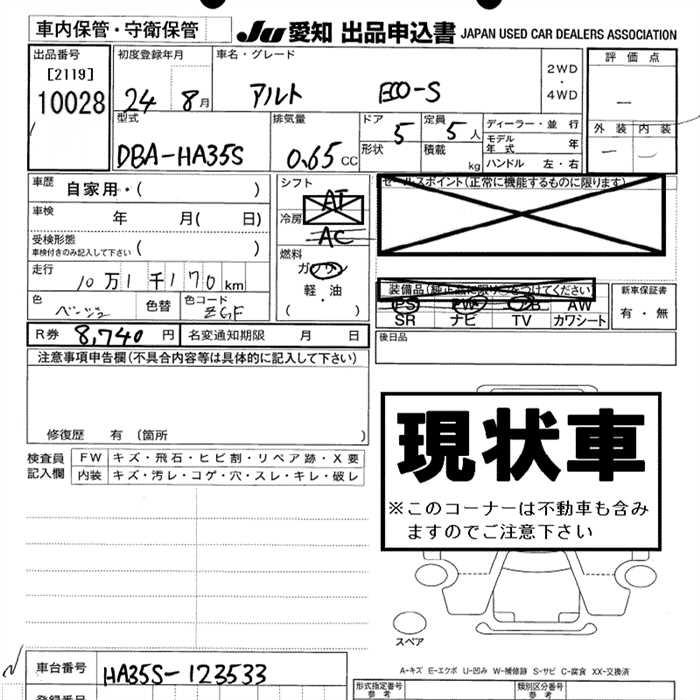 車内保管・守衛保管
JU 愛知 出品申込書 JAPAN USED CAR DEALERS ASSOCIATION
出品番号
[2119]
10028
初度登録年月
24 8月
車名・グレード
アルト ECO-S
2WD
・
4WD
評価点
外装 内装
型式
DBA-HA35S
排気量
0.65 CC
ドア
5
形状
定員
5人
積載
kg
ディーラー・並行
モデル
年式 年
ハンドル 左・右
車歴
自家用・( )
車検
年 月( 日)
受検形態
車検付きのみ記入して下さい ( )
走行
10万1千170 km
色
ベージュ
色替
色コード
ZGF
シフト
AT
冷房
AC
燃料
ガソリン
軽・油
( )
セールスポイント(正常に機能するものに限ります)
装備品(純正品に限り○をつけてください
PS PW AB AW
SR ナビ TV カワシート
新車保証書
有・無
後日品
R券 8,740 円 名変通知期限 月 日
注意事項申告欄(不具合内容等は具体的に記入して下さい)
修復歴 有 (箇所 )
検査員
記入欄
FW キズ・飛石・ヒビ割・リペア跡・X要
内装 キズ・汚レ・コゲ・穴・スレ・キレ・破レ
現状車
※このコーナーは不動車も含み
ますのでご注意下さい
スペア
A-キズ E-エクボ U-凹み W-補修跡 S-サビ C-腐食 XX-交換済
車台番号 HA35S-123533
登録番号
形式指定番号
参考
類別区分番号
参考